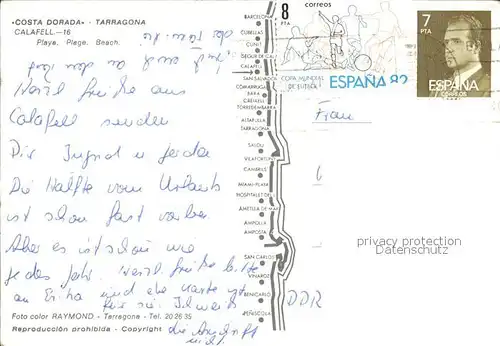 «COSTA DORADA» - TARRAGONA
CALAFELL.—16
Playa. Plage. Beach.
Herzl. Grüße aus
Calafell senden
Dir Ingrid u Gerda
Die Hälfte vom Urlaub
ist schon fast vorbei.
Aber es ist schön wie
jedes Jahr. Herzl. Grüße bitte
an Erika und die Karte ist
für sie. Ich weiß
die Anschrift
nicht
Foto color RAYMOND - Tarragona - Tel. 20 26 35
Reproducción prohibida - Copyright
BARCELONA
CUBELLAS
CUNIT
SEGUR DE CALAFELL
CALAFELL
SAN SALVADOR
COMARRUGA
BARA
CREIXELL
TORREDEMBARRA
ALTAFULLA
TARRAGONA
SALOU
VILAFORTUNY
CAMBRILS
MIAMI-PLAYA
HOSPITALET DEL I.
AMETLLA DE MAR
AMPOLLA
AMPOSTA
SAN CARLOS
VINAROZ
BENICARLO
PEÑISCOLA
8
PTA
correos
COPA MUNDIAL
DE FUTBOL
ESPAÑA 82
7
PTA
ESPAÑA
CORREOS
Frau
DDR
privacy protection
Datenschutz